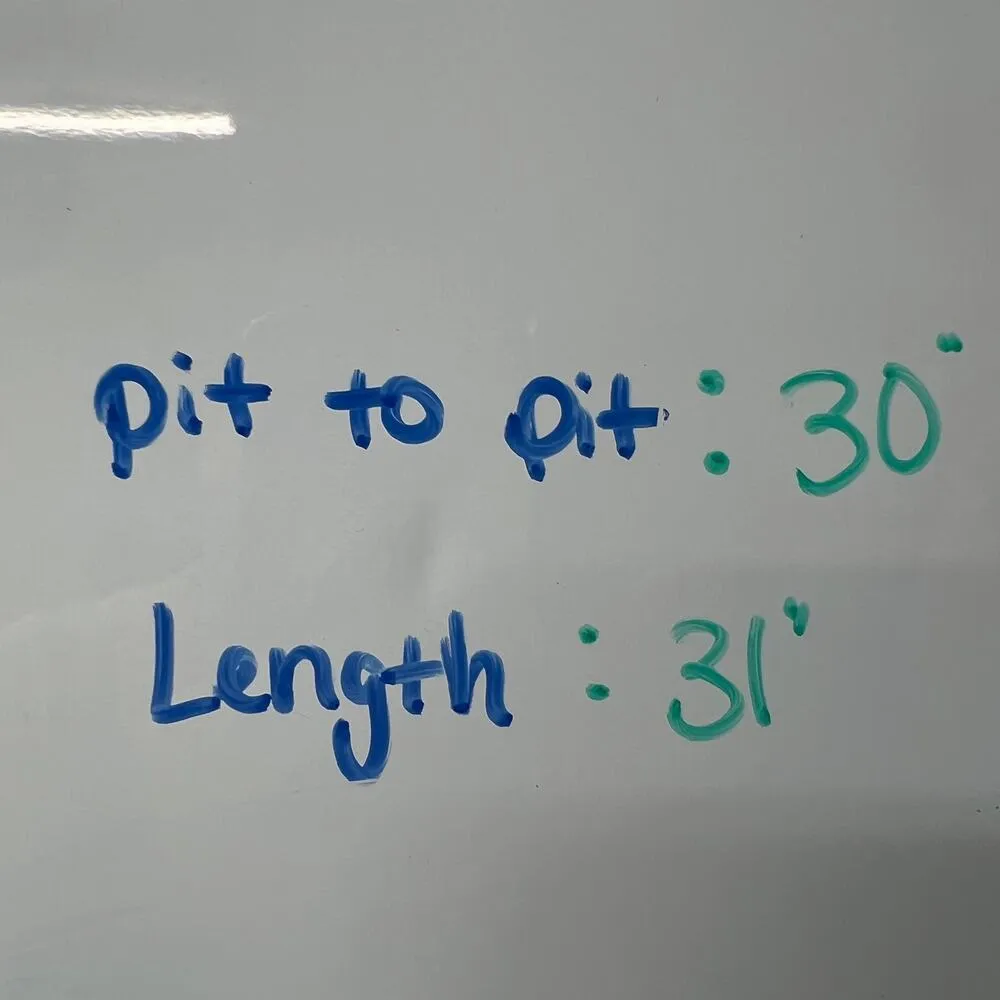 pit to pit : 30"
Length : 31"